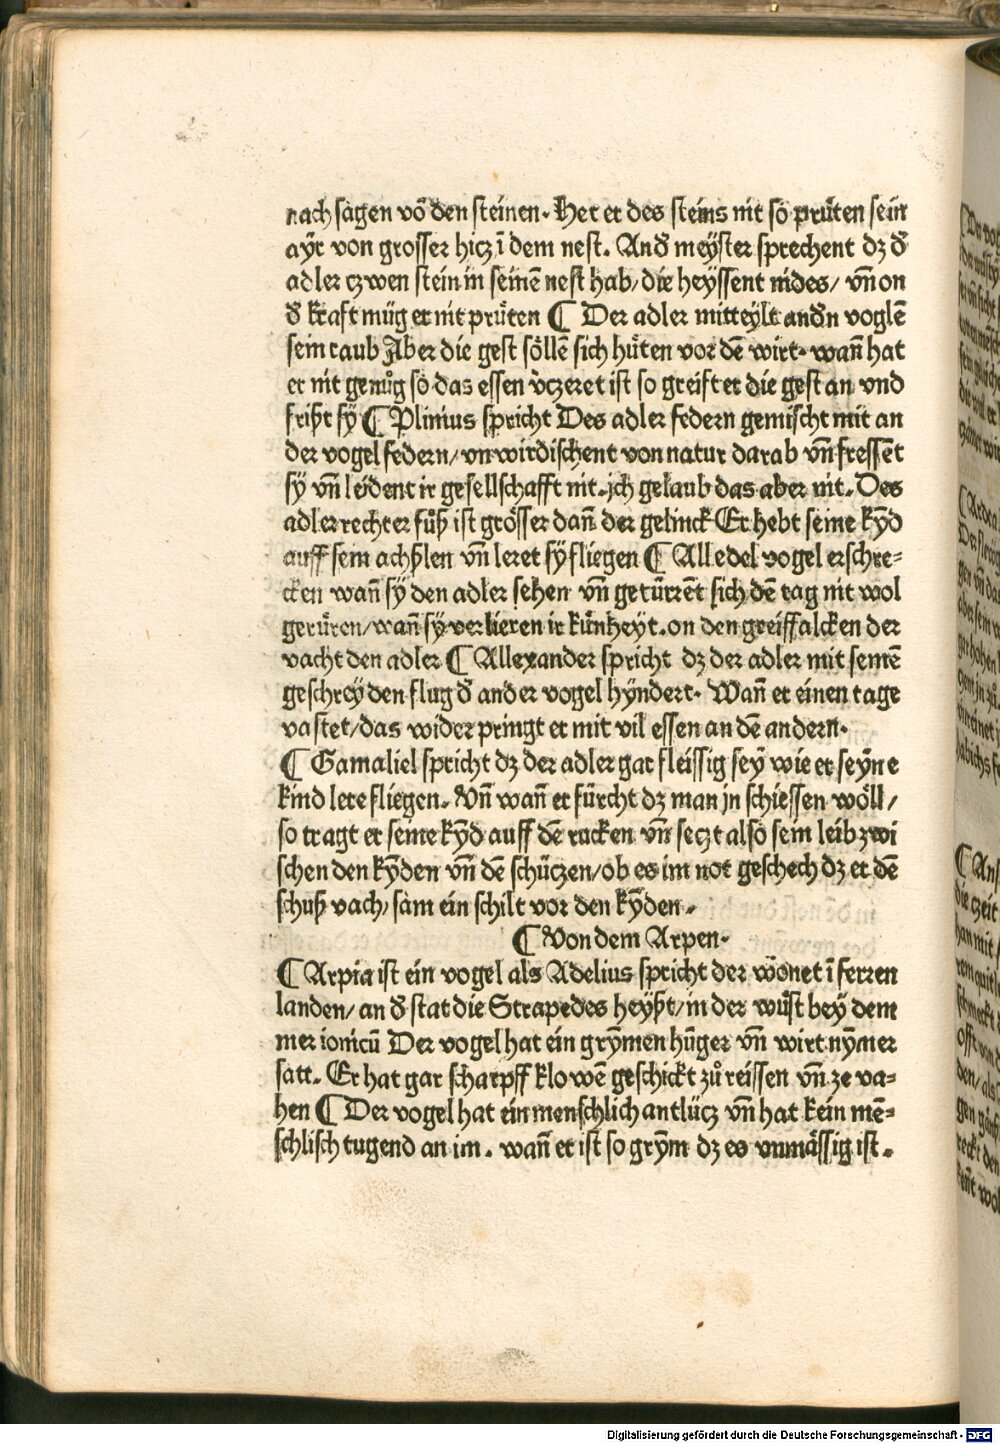 nach sagen võ den steinen. Het er des steins nit so prüten sein
ayr von grosser hicz ĩ dem nest. And̃ meyster sprechent dz d̃
adler czwen stein in seinẽ nest hab/ die heyssent nides/ vñ on
d̃ kraft müg er nit prüten ¶ Der adler mitteylt andn voglẽ
sein raub Aber die gest söllẽ sich hüten vor dẽ wirt. wañ hat
er nit genůg so das essen v̾czeret ist so greift er die gest an vnd
frißt sy ¶ Plinius spricht Des adler federn gemischt mit an
der vogel federn/ vn wirdischent von natur darab vñ fressẽt
sy vñ leident ir gesellschafft nit. jch gelaub das aber nit. Des
adler rechter fůß ist grösser dañ der gelinck Er hebt seine kỹd
auff sein achßlen vñ leret sy fliegen ¶ All edel vogel erschre⸗
cken wañ sy den adler sehen vñ getürrẽt sich dẽ tag nit wol
gerüren/ wañ sy verlieren ir künheyt. on den greiffalcken der
vacht den adler ¶ Allexander spricht dz der adler mit seinẽ
geschrey den flug d̃ ander vogel hyndert. Wañ er einen tage
vastet/ das widerpringt er mit vil essen an dẽ andern.
¶ Gamaliel spricht dz der adler gar fleissig sey wie er seyne
kind lere fliegen. Vñ wañ er fürcht dz man jn schiessen wöll/
so tragt er seine kỹd auff dẽ rucken vñ seczt also sein leib zwi
schen den kỹden vñ dẽ schüczen/ ob es im not geschech dz er dẽ
schuß vach/ sam ein schilt vor den kỹden.
¶ Von dem Arpen.
¶ Arpia ist ein vogel als Adelius spricht der wonet ĩ ferren
landen/ an d̃ stat die Strapedes heyßt/ in der wůst bey dem
mer ionicũ Der vogel hat ein grỹmen hũger vñ wirt nỹmer
satt. Er hat gar scharpff klowẽ geschickt zů reissen vñ ze va⸗
hen ¶ Der vogel hat ein menschlich antlücz vñ hat kein mẽ⸗
schlisch tugend an im. wañ er ist so grỹm dz es vnmässig ist.
Digitalisierung gefördert durch die Deutsche Forschungsgemeinschaft - DFG